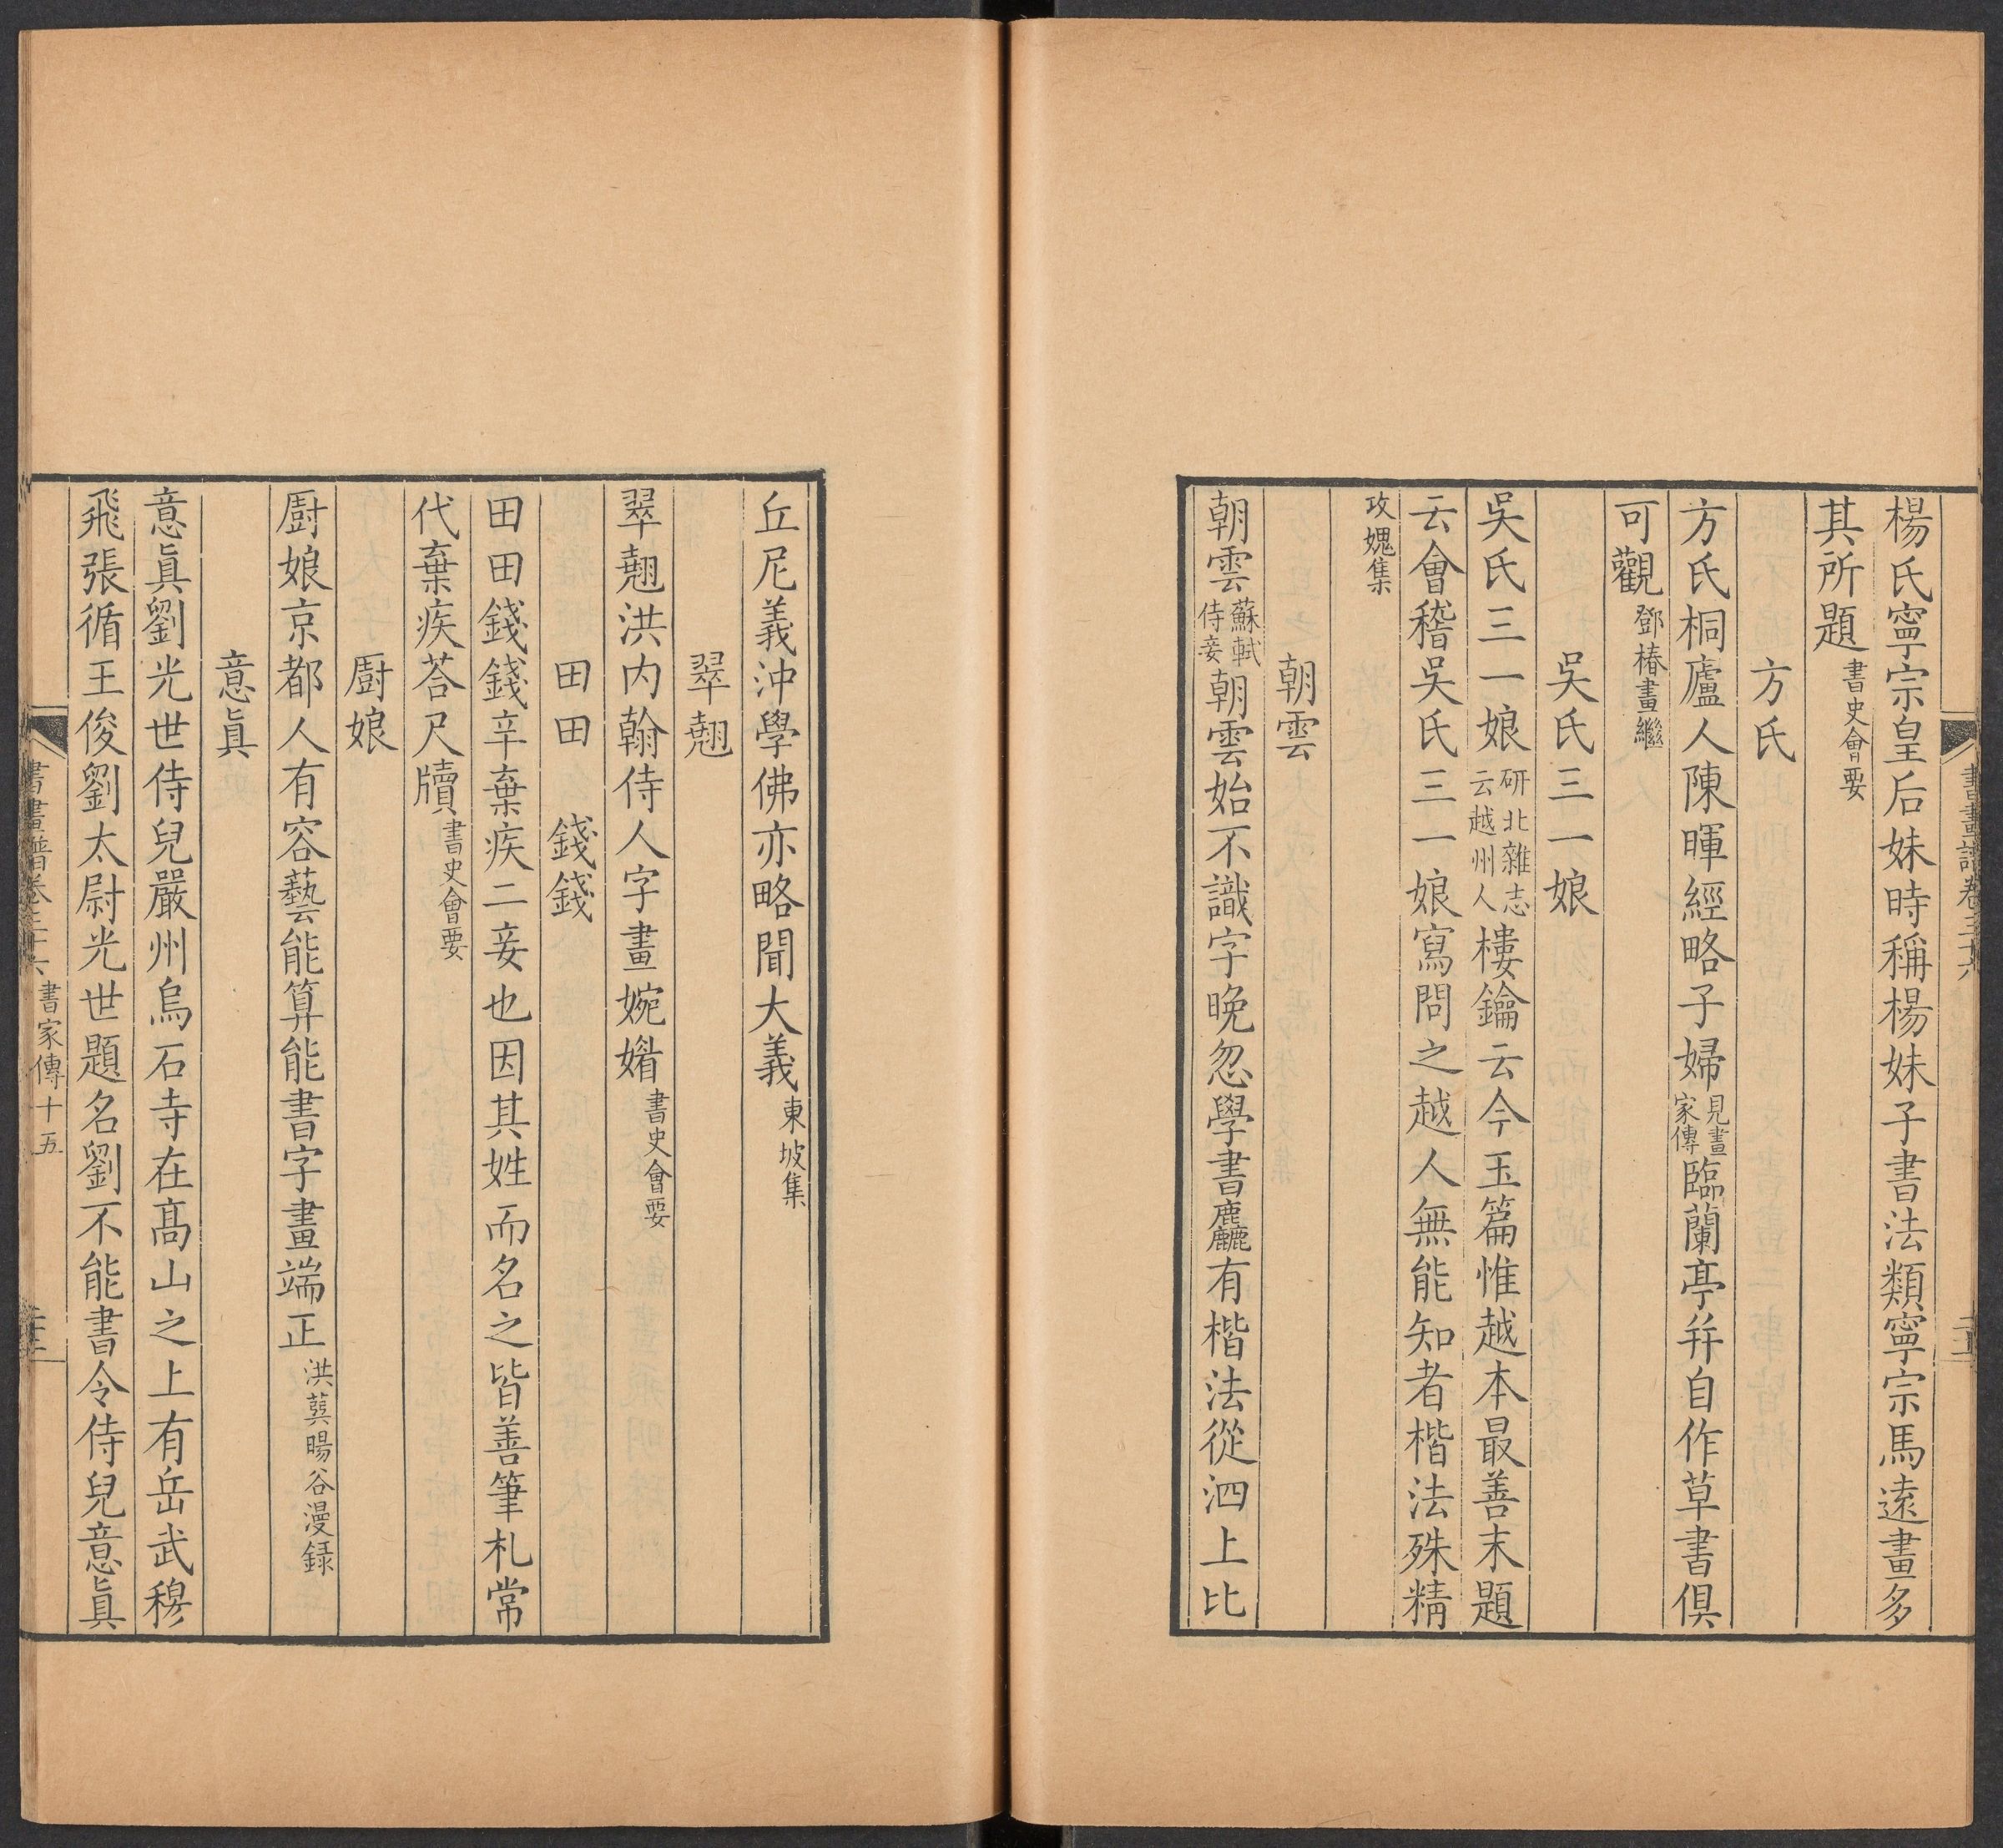 楊氏寧宗皇后妹時稱楊妹子書法類寧宗馬遠畫多
其所題書史會要
方氏
方氏桐廬人陳暉經略子婦見畫家傳臨蘭亭并自作草書俱
可觀鄧椿畫繼
吳氏三一娘
吳氏三一娘研北雜志云越州人樓鑰云今玉篇惟越本最善末題
云會稽吳氏三一娘寫問之越人無能知者楷法殊精
攻媿集
朝雲
朝雲蘇軾侍妾朝雲始不識字晚忽學書麤有楷法從泗上比
丘尼義沖學佛亦略聞大義東坡集
翠翹
翠翹洪内翰侍人字畫婉媚書史會要
田田 錢錢
田田錢錢辛棄疾二妾也因其姓而名之皆善筆札常
代棄疾荅尺牘書史會要
厨娘
厨娘京都人有容藝能算能書字畫端正洪巽暘谷漫録
意眞
意眞劉光世侍兒嚴州烏石寺在髙山之上有岳武穆
飛張循王俊劉太尉光世題名劉不能書令侍兒意眞
書畫譜卷三十六 書家傳十五